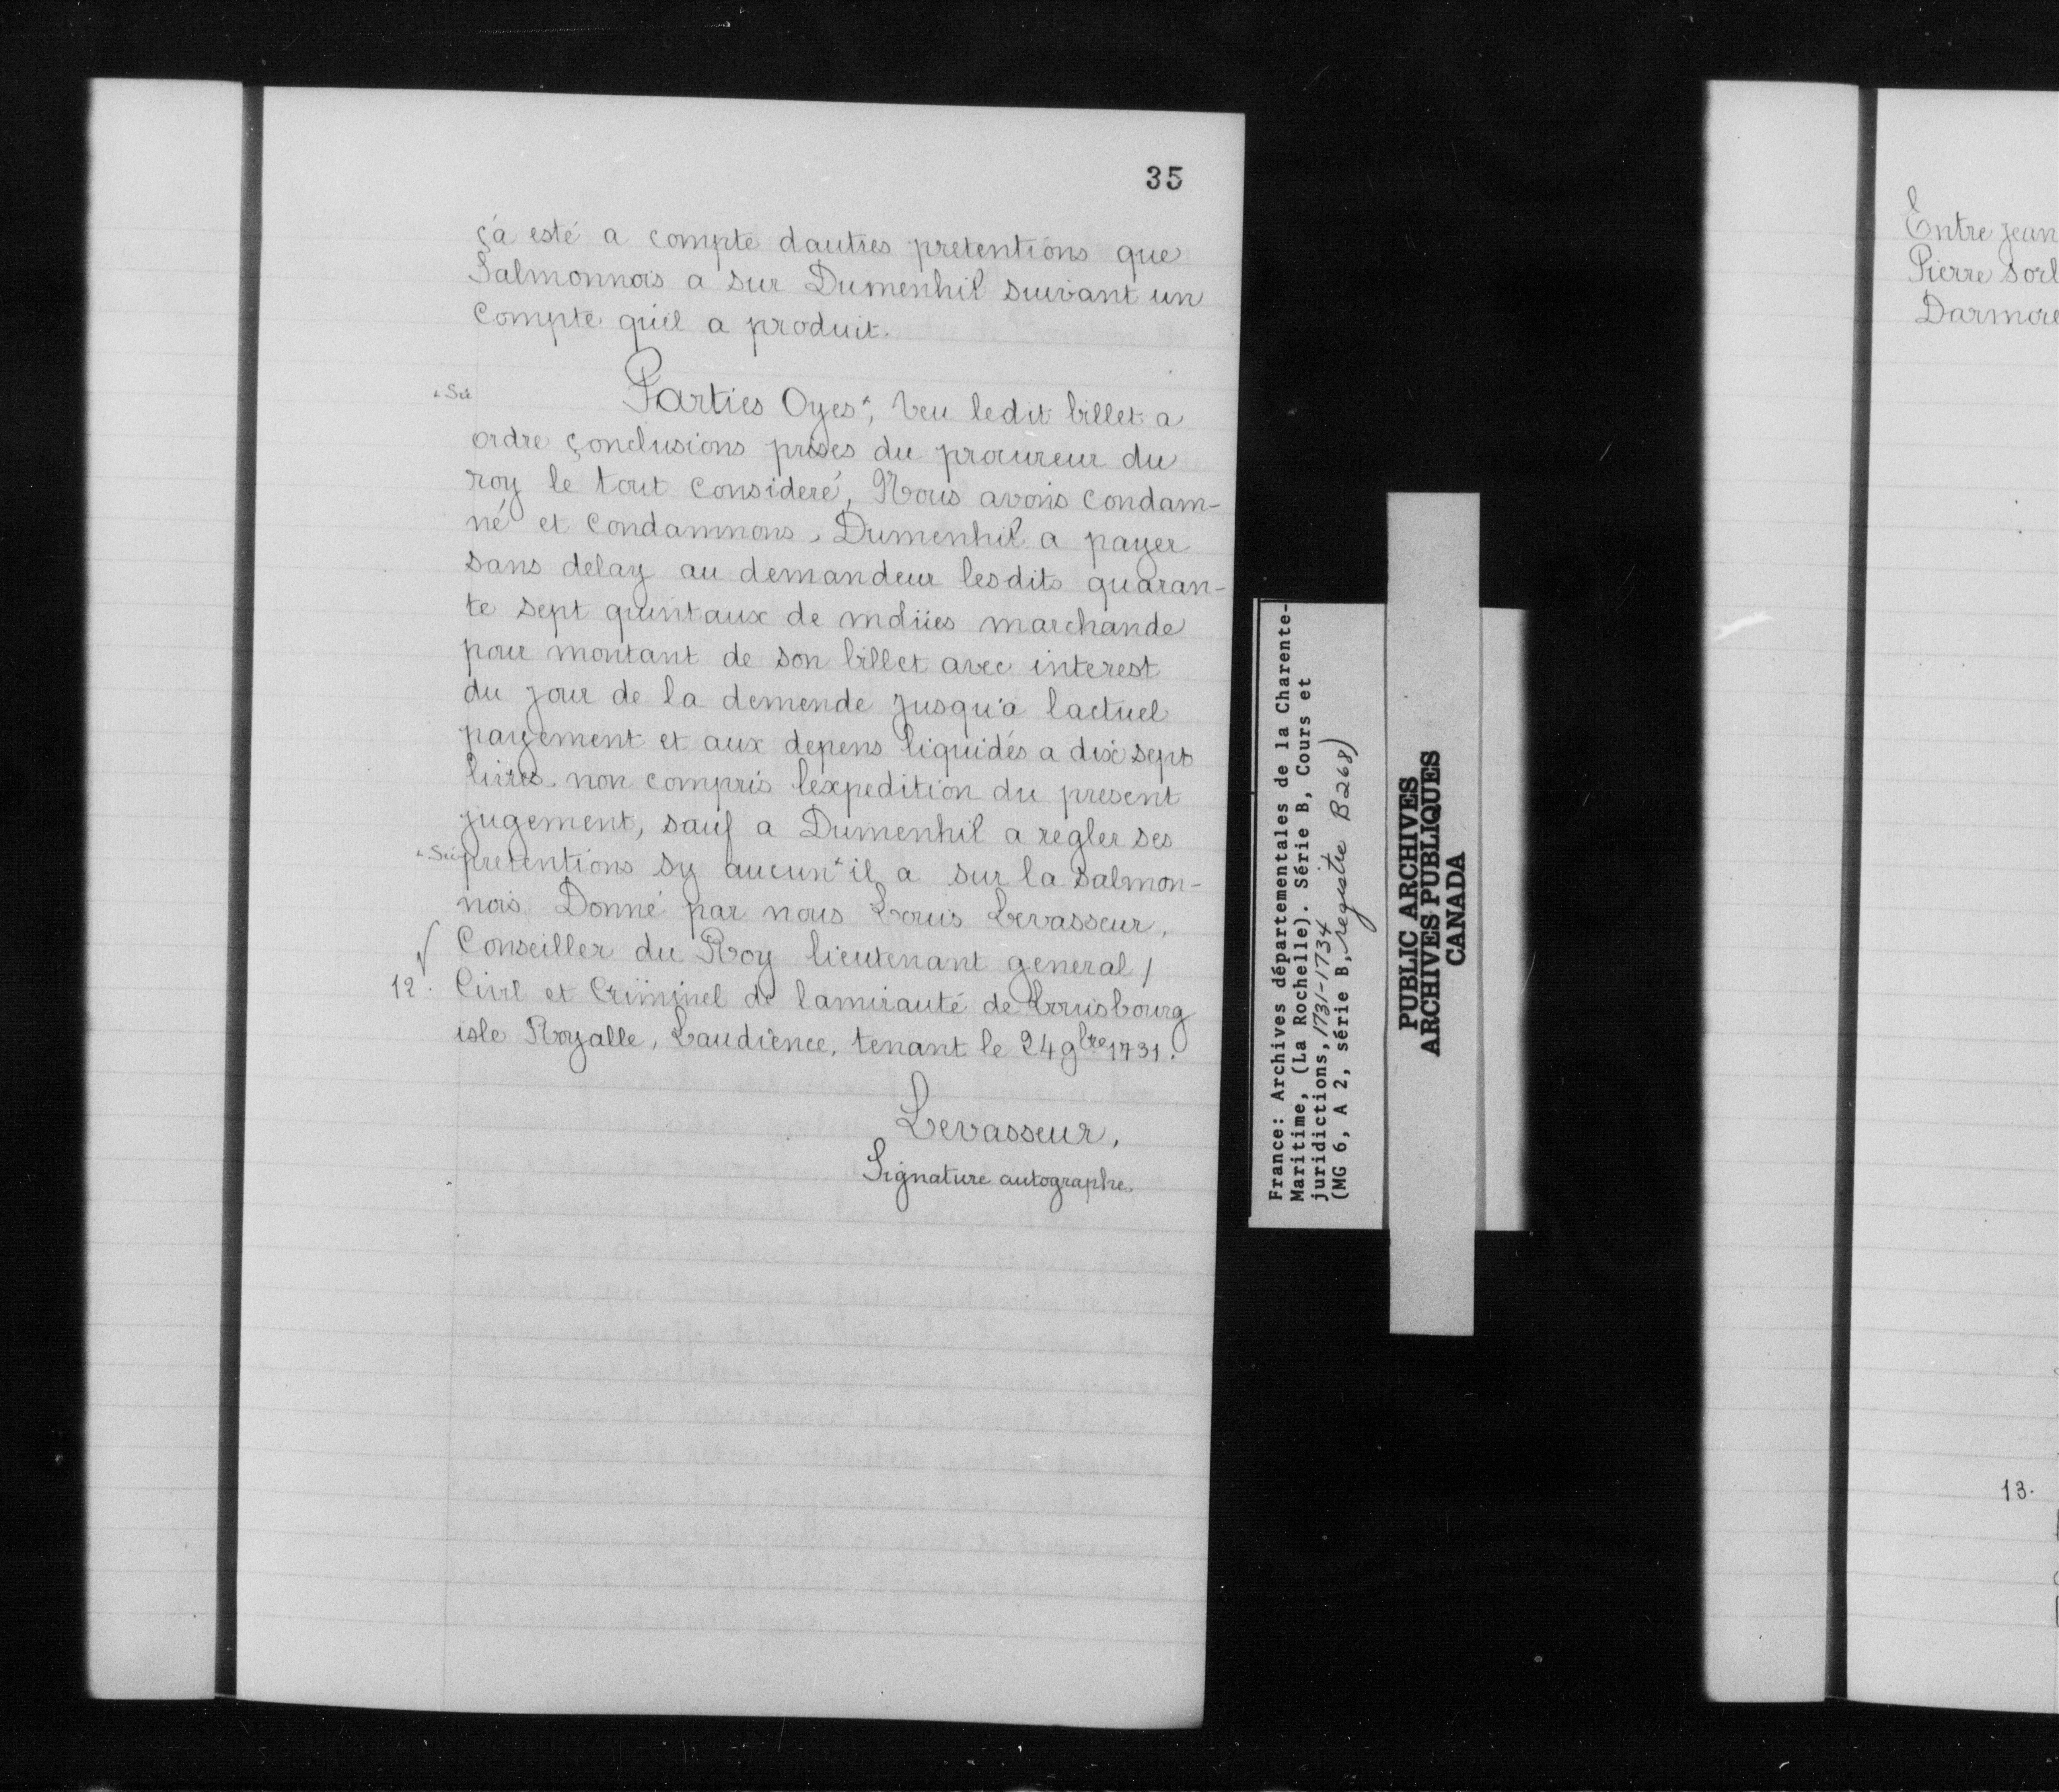 35
ça esté a compte dautres pretentions que
Salmonnois a sur Dumenhil suivant un
compte qu'il a produit.
+ Sic
Parties Oyes+, Veu ledit billet a
ordre conclusions prises du procureur du
roy le tout consideré, Nous avons condam-
né et condamnons, Dumenhil a payer
sans delay au demandeur lesdits quaran-
te sept quintaux de molüés marchande
pour montant de son billet avec interest
du jour de la demende jusqu'a lactuel
payement et aux depens liquidés a dix sept
livres non compris lexpedition du present
jugement, sauf a Dumenhil a regler ses
+ Sic pretentions sy aucun+ il a sur la Salmon-
nois Donné par nous Louis Levasseur,
Conseiller du Roy lieutenant general /
12. Civil et Criminel de lamirauté de Louisbourg
isle Royalle, Laudience, tenant le 24 9bre 1731.
Levasseur,
Signature autographe.
France: Archives départementales de la Charente-
Maritime, (La Rochelle). Série B, Cours et
juridictions, 1731-1734
(MG 6, A 2, série B, registre B268)
PUBLIC ARCHIVES
ARCHIVES PUBLIQUES
CANADA
Entre jean
Pierre sorl
Darmore
13.